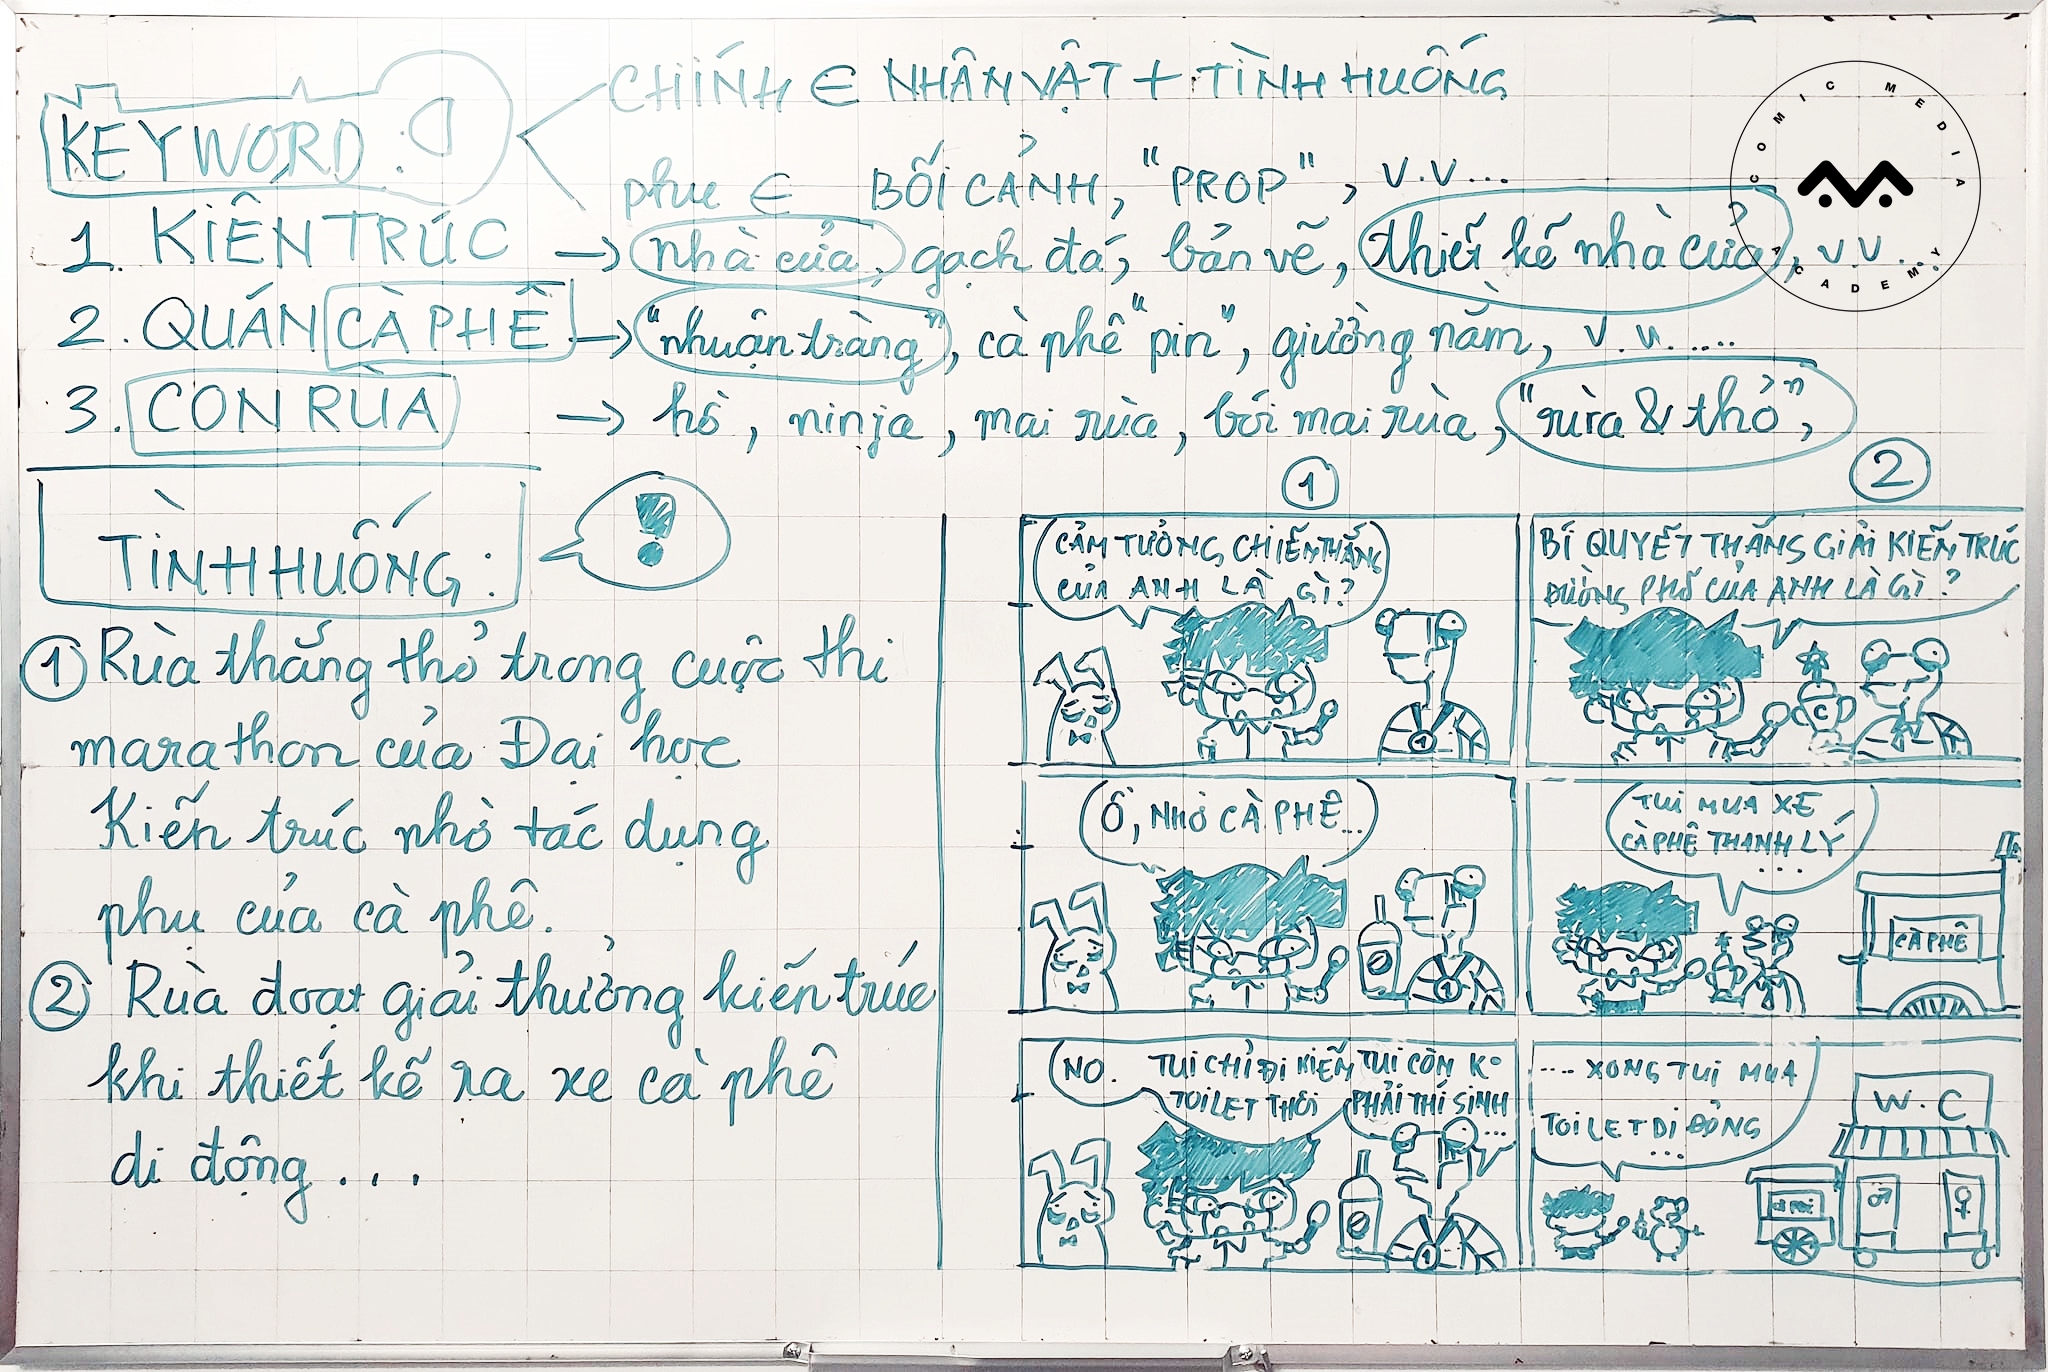 KEYWORD:
CHÍNH ∈ NHÂN VẬT + TÌNH HUỐNG
phụ ∈ BỐI CẢNH, "PROP", v.v...
1. KIẾN TRÚC → nhà cửa, gạch đá, bản vẽ, thiết kế nhà cửa, v.v...
2. QUÁN CÀ PHÊ → "nhuận tràng", cà phê "pin", giường nằm, v.v.....
3. CON RÙA → hồ, ninja, mai rùa, bói mai rùa, "rùa & thỏ",
COMIC MEDIA ACADEMY
TÌNH HUỐNG:
!
① Rùa thắng thỏ trong cuộc thi
marathon của Đại học
Kiến trúc nhờ tác dụng
phụ của cà phê.
② Rùa đoạt giải thưởng kiến trúc
khi thiết kế ra xe cà phê
di động...
①
CẢM TƯỞNG CHIẾN THẮNG
CỦA ANH LÀ GÌ?
1
Ồ, NHỜ CÀ PHÊ...
1
NO. TUI CHỈ ĐI KIẾM
TOILET THÔI
TUI CÒN K°
PHẢI THÍ SINH
...
1
②
BÍ QUYẾT THẮNG GIẢI KIẾN TRÚC
ĐƯỜNG PHỐ CỦA ANH LÀ GÌ?
C
TUI MUA XE
CÀ PHÊ THANH LÝ
...
CÀ PHÊ
.... XONG TUI MUA
TOILET DI ĐỘNG
...
W.C